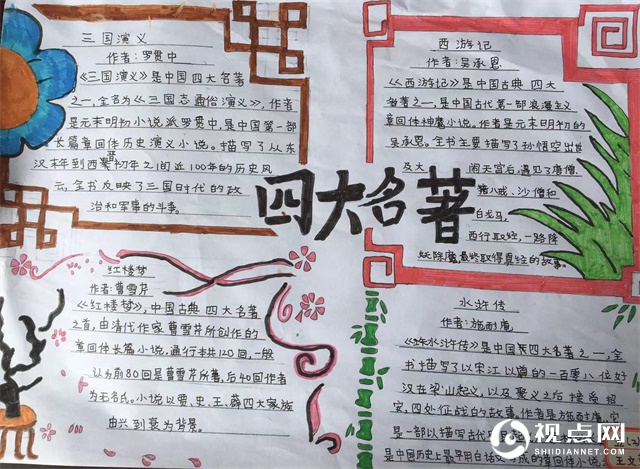 三国演义
作者：罗贯中
《三国演义》是中国四大名著
之一，全名为《三国志通俗演义》，作者
是元末明初小说派罗贯中，是中国第一部
长篇章回体历史演义小说。描写了从东
汉末年到西晋初年之间近100年的历史风
云，全书反映了三国时代的政
治和军事的斗争。
西游记
作者：吴承恩
《西游记》是中国古典四大
名著之一，是中国古代第一部浪漫主义
章回体神魔小说。作者是元末明初的
吴承恩。全书主要描写了孙悟空出世
及大闹天宫后，遇见了唐僧、
猪八戒、沙僧和
白龙马，
西行取经，一路降
妖除魔最终取得真经的故事。
四大名著
红楼梦
作者：曹雪芹
《红楼梦》，中国古典四大名著
之首，由清代作家曹雪芹所创作的
章回体长篇小说，通行本共120回，一般
认为前80回是曹雪芹所著，后40回作者
为无名氏。小说以贾、史、王、薛四大家族
由兴到衰为背景。
水浒传
作者：施耐庵
《水浒传》是中国四大名著之一，全
书描写了以宋江以首的一百零八位好
汉在梁山起义，以及聚义之后接受招
安、四处征战的故事。作者是施耐庵，它
是一部以描写古代
是中国历史上最早用白话文写成的章回体小说
视点网
SHIDIANNET.COM